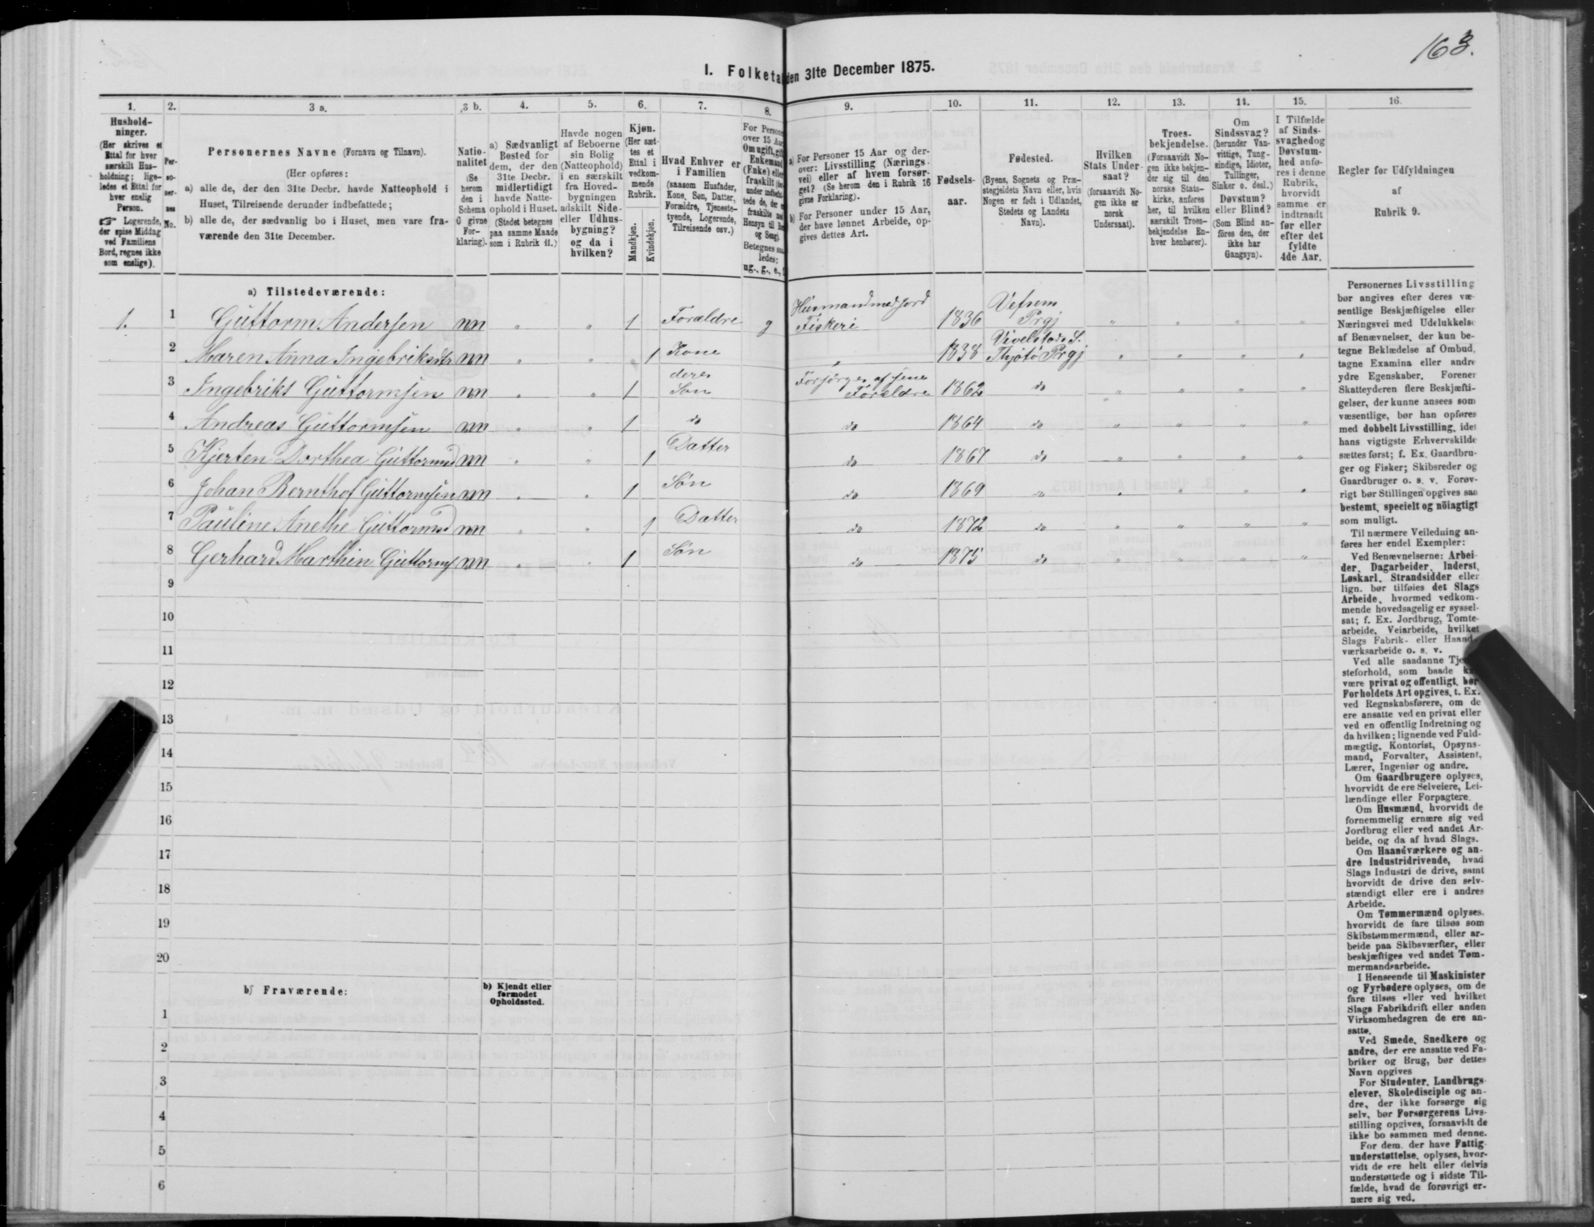 163.
I. Folketal den 31te December 1875.
1. 2. 3 a. 3 b. 4. 5. 6. 7. 8. 9. 10. 11. 12. 13. 14. 15. 16.
Hushold-
ninger.
(Her skrives et
Ettal for hver
særskilt Hus-
holdning; lige-
ledes et Ettal for
hver enslig
Person.
☞ Logerende,
der spise Middag
ved Familiens
Bord, regnes ikke
som enslige).
Per-
so-
ner-
nes
No.
Personernes Navne (Fornavn og Tilnavn).
(Her opføres:
a) alle de, der den 31te Decbr. havde Natteophold i
Huset, Tilreisende derunder indbefattede;
b) alle de, der sædvanlig bo i Huset, men vare fra-
værende den 31te December.
Natio-
nalitet
(Se
herom
den i
Schema
O givne
For-
klaring).
a) Sædvanligt
Bosted for
dem, der den
31te Decbr.
midlertidigt
havde Natte-
ophold i Huset.
(Stedet betegnes
paa samme Maade
som i Rubrik 11.)
Havde nogen
af Beboerne
sin Bolig
(Natteophold)
i en særskilt
fra Hoved-
bygningen
adskilt Side-
eller Udhus-
bygning?
og da i
hvilken?
Kjøn.
(Her sæt-
tes et
Ettal i
vedkom-
mende
Rubrik.
Mandkjøn.
Kvindekjøn.
Hvad Enhver er
i Familien
(saasom Husfader,
Kone, Søn, Datter,
Forældre, Tjeneste-
tyende, Logerende,
Tilreisende osv.)
For Person
over 15 Aar
Om ugift, gift,
Enkemand
(Enke) eller
fraskilt
Betegnes
ledes;
ug., g., e.,
a) For Personer 15 Aar og der-
over: Livsstilling (Nærings-
vei) eller af hvem forsør-
get? (Se herom den i Rubrik 16
givne Forklaring).
b) For Personer under 15 Aar,
der have lønnet Arbeide, op-
gives dettes Art.
Fødsels-
aar.
Fødested.
(Byens, Sognets og Præ-
stegjeldets Navn eller, hvis
Nogen er født i Udlandet,
Stedets og Landets
Navn).
Hvilken
Stats Under-
saat?
(forsaavidt No-
gen ikke er
norsk
Undersaat).
Troes-
bekjendelse.
(Forsaavidt No-
gen ikke bekjen-
der sig til den
norske Stats-
kirke, anføres
her, til hvilken
særskilt Troes-
bekjendelse En-
hver henhører).
Om
Sindssvag?
(herunder Van-
vittige, Tung-
sindige, Idioter,
Tullinger,
Sinker o. desl.)
Døvstum?
eller Blind?
(Som Blind an-
føres den, der
ikke har
Gangsyn).
I Tilfælde
af Sinds-
svaghed og
Døvstum-
hed anfø-
res i denne
Rubrik,
hvorvidt
samme er
indtraadt
før eller
efter det
fyldte
4de Aar.
Regler før Udfyldningen
af
Rubrik 9.
a) Tilstedeværende:
1. 1 Guttorm Andersen nn " " 1 Forældre g Husmand med jord Fiskeri 1836 Vefsen Prgj " " " "
2 Maren Anna Ingebriksdtr nn " " 1 Kone " 1838 Vivelstads S. Thjøtø Prgj " " " "
3 Ingebriks Guttormsen nn " " 1 deres Søn Forsørges af sine Foreldre 1862 do " " " "
4 Andreas Guttormsen nn " " 1 do do 1864 do " " " "
5 Kjersten Dorthea Guttormsd nn " " 1 Datter do 1867 do " " " "
6 Johan Bernthof Guttormsen nn " " 1 Søn do 1869 " " " " "
7 Pauline Anethe Guttormsd nn " " 1 Datter do 1872 do " " " "
8 Gerhard Marthin Guttorms nn " " 1 Søn do 1875 do " " " "
9
10
11
12
13
14
15
16
17
18
19
20
b) Fraværende:
b) Kjendt eller
formodet
Opholdssted.
1
2
3
4
5
6
Personernes Livsstilling
bør angives efter deres væ-
sentlige Beskjæftigelse eller
Næringsvei med Udelukkelse
af Benævnelser, der kun be-
tegne Beklædelse af Ombud,
tagne Examina eller andre
ydre Egenskaber. Forener
Skatteyderen flere Beskjæfti-
gelser, der kunne ansees som
væsentlige, bør han opføres
med dobbelt Livsstilling, idet
hans vigtigste Erhvervskilde
sættes først; f. Ex. Gaardbru-
ger og Fisker; Skibsreder og
Gaardbruger o. s. v. Forøv-
rigt bør Stillingen opgives saa
bestemt, specielt og nøiagtigt
som muligt.
Til nærmere Veiledning an-
føres her endel Exempler:
Ved Benævnelserne: Arbei-
der, Dagarbeider, Inderst,
Løskarl, Strandsidder eller
lign. bør tilføies det Slags
Arbeide, hvormed vedkom-
mende hovedsagelig er syssel-
sat; f. Ex. Jordbrug, Tomte-
arbeide, Veiarbeide, hvilket
Slags Fabrik- eller Haand-
værksarbeide o. s. v.
Ved alle saadanne Tje-
steforhold, som baade
være privat og offentligt, bør
Forholdets Art opgives, t. Ex.
ved Regnskabsførere, om de
ere ansatte ved en privat eller
ved en offentlig Indretning og
da hvilken; lignende ved Fuld-
mægtig, Kontorist, Opsyns-
mand, Forvalter, Assistent,
Lærer, Ingeniør og andre.
Om Gaardbrugere oplyses,
hvorvidt de ere Selveiere, Lei-
lændinge eller Forpagtere.
Om Husmænd, hvorvidt de
fornemmelig ernære sig ved
Jordbrug eller ved andet Ar-
beide, og da af hvad Slags.
Om Haandværkere og an-
dre Industridrivende, hvad
Slags Industri de drive, samt
hvorvidt de drive den selv-
stændigt eller ere i andres
Arbeide.
Om Tømmermænd oplyses,
hvorvidt de fare tilsøs som
Skibstømmermænd, eller ar-
beide paa Skibsværfter, eller
beskjæftiges ved andet Tøm-
mermandsarbeide.
I Henseende til Maskinister
og Fyrbødere oplyses, om de
fare tilsøs eller ved hvilket
Slags Fabrikdrift eller anden
Virksomhedsgren de ere an-
satte.
Ved Smede, Snedkere og
andre, der ere ansatte ved Fa-
briker og Brug, bør dettes
Navn opgives
For Studenter, Landbrugs-
elever, Skoledisciple og an-
dre, der ikke forsørge sig
selv, bør Forsørgerens Livs-
stilling opgives, forsaavidt de
ikke bo sammen med denne.
For dem, der have Fattig-
understøttelse, oplyses, hvor-
vidt de ere helt eller delvis
understøttede og i sidste Til-
fælde, hvad de forøvrigt er-
nære sig ved.